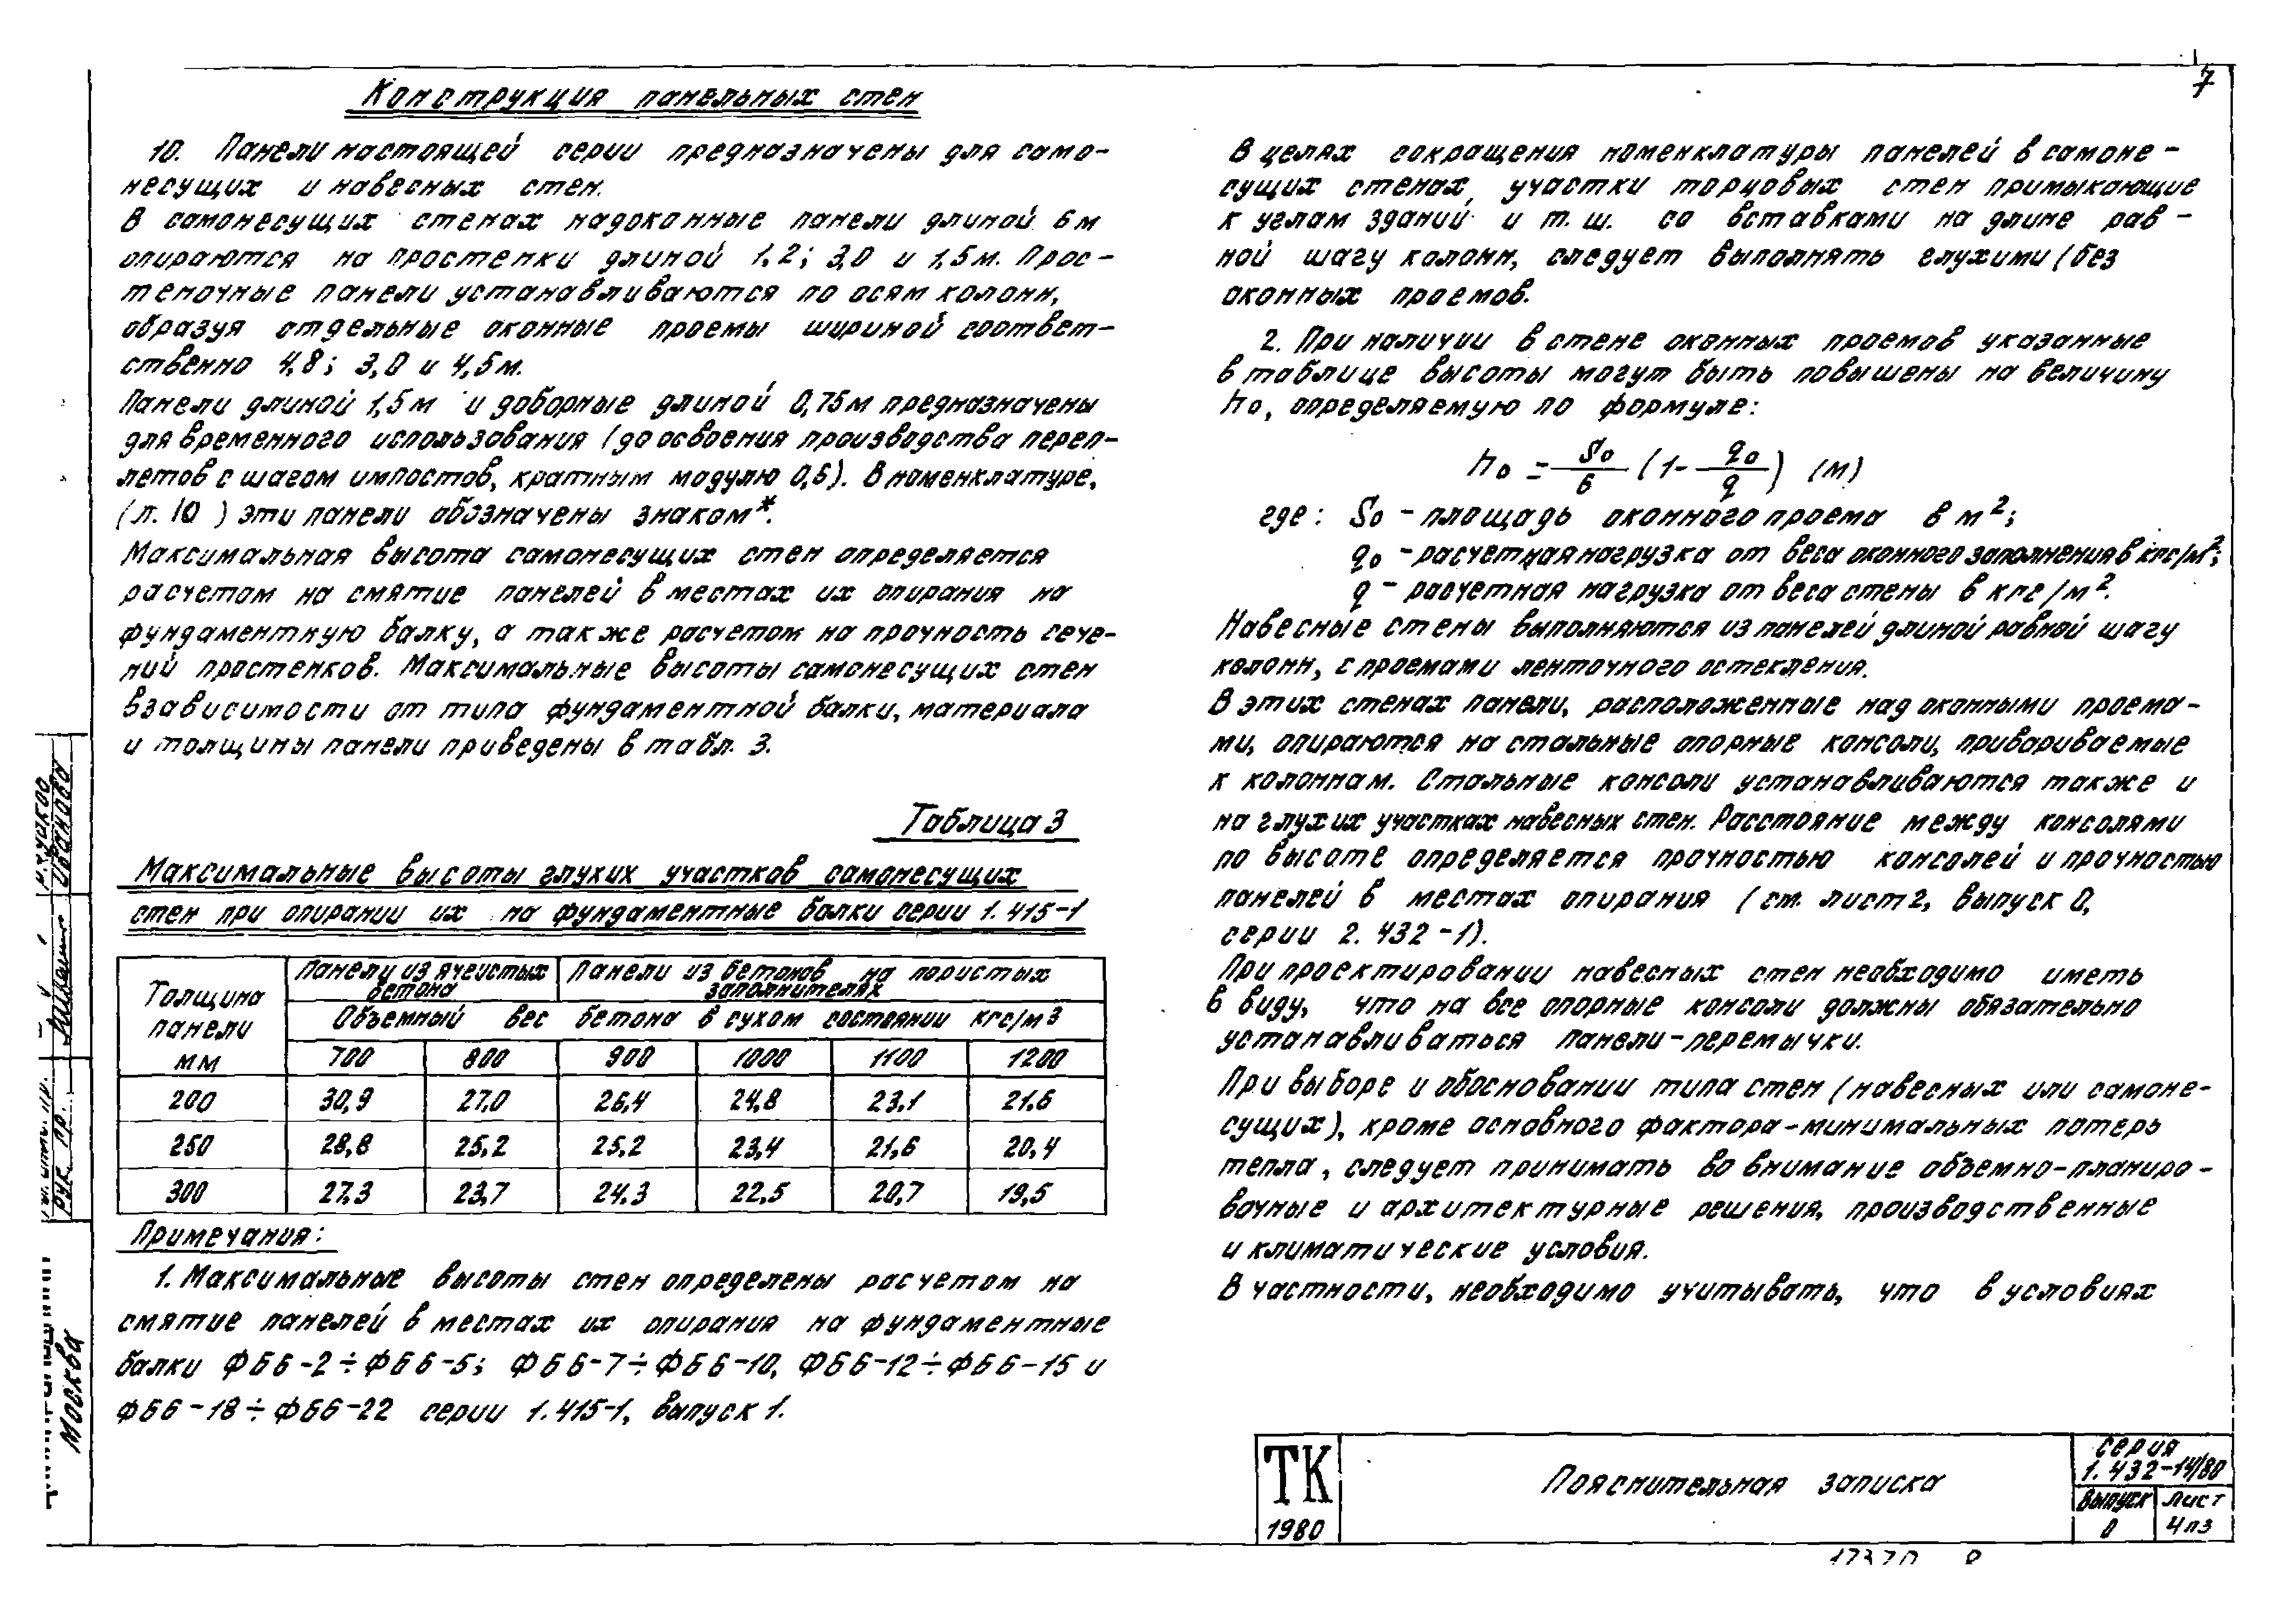 7
Конструкция панельных стен
10. Панели настоящей серии предназначены для само-
несущих и навесных стен.
В самонесущих стенах надоконные панели длиной 6 м
опираются на простенки длиной 1,2; 3,0 и 1,5 м. Прос-
теночные панели устанавливаются по осям колонн,
образуя отдельные оконные проемы шириной соответ-
ственно 4,8; 3,0 и 4,5 м.
Панели длиной 1,5 м и доборные длиной 0,75 м предназначены
для временного использования (до освоения производства переп-
летов с шагом импостов, кратным модулю 0,6). В номенклатуре,
(л. 10) эти панели обозначены знаком*.
Максимальная высота самонесущих стен определяется
расчетом на смятие панелей в местах их опирания на
фундаментную балку, а также расчетом на прочность сече-
ний простенков. Максимальные высоты самонесущих стен
в зависимости от типа фундаментной балки, материала
и толщины панели приведены в табл. 3.
Таблица 3
Максимальные высоты глухих участков самонесущих
стен при опирании их на фундаментные балки серии 1.415-1
Толщина панели мм | Панели из ячеистых бетона | Панели из бетонов на пористых заполнителях
Объемный вес бетона в сухом состоянии кгс/м3
700 | 800 | 900 | 1000 | 1100 | 1200
200 | 30,9 | 27,0 | 26,4 | 24,8 | 23,1 | 21,6
250 | 28,8 | 25,2 | 25,2 | 23,4 | 21,6 | 20,4
300 | 27,3 | 23,7 | 24,3 | 22,5 | 20,7 | 19,5
Примечания:
1. Максимальные высоты стен определены расчетом на
смятие панелей в местах их опирания на фундаментные
балки ФБ6-2÷ФБ6-5; ФБ6-7÷ФБ6-10, ФБ6-12÷ФБ6-15 и
ФБ6-18÷ФБ6-22 серии 1.415-1, выпуск 1.
В целях сокращения номенклатуры панелей в самоне-
сущих стенах, участки торцовых стен примыкающие
к углам зданий и т. ш. со вставками на длине рав-
ной шагу колонн, следует выполнять глухими (без
оконных проемов.
2. При наличии в стене оконных проемов указанные
в таблице высоты могут быть повышены на величину
h₀, определяемую по формуле:
h₀ = S₀/6 (1- q₀/q) (м)
где: S₀ - площадь оконного проема в м²;
q₀ - расчетная нагрузка от веса оконного заполнения в кгс/м²;
q - расчетная нагрузка от веса стены в кгс/м².
Навесные стены выполняются из панелей длиной равной шагу
колонн, с проемами ленточного остекления.
В этих стенах панели, расположенные над оконными проема-
ми, опираются на стальные опорные консоли, привариваемые
к колоннам. Стальные консоли устанавливаются также и
на глухих участках навесных стен. Расстояние между консолями
по высоте определяется прочностью консолей и прочностью
панелей в местах опирания (см. лист 2, выпуск 0,
серии 2.432-1).
При проектировании навесных стен необходимо иметь
в виду, что на все опорные консоли должны обязательно
устанавливаться панели-перемычки.
При выборе и обосновании типа стен (навесных или самоне-
сущих), кроме основного фактора-минимальных потерь
тепла, следует принимать во внимание объемно-планиро-
вочные и архитектурные решения, производственные
и климатические условия.
В частности, необходимо учитывать, что в условиях
ТК
1980
Пояснительная записка
Серия
1.432-14/80
Выпуск | Лист
0 | 4пз
Москва